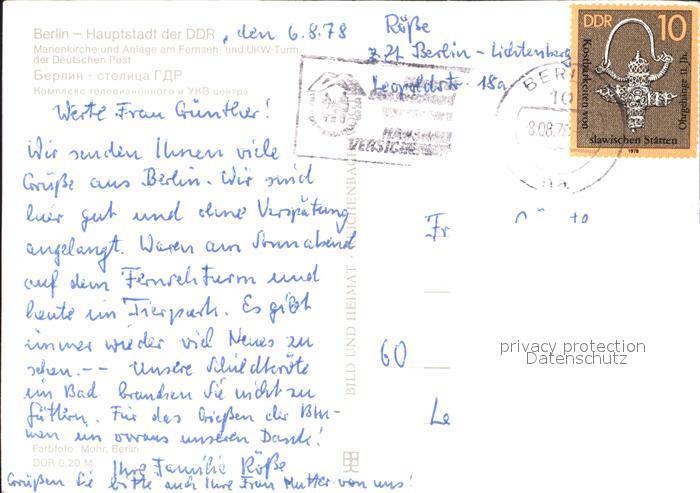 Berlin – Hauptstadt der DDR, den 6.8.78
Marienkirche und Anlage am Fernseh- und UKW-Turm
der Deutschen Post
Берлин · столица ГДР
Комплекс телевизионного и УКВ центра
Röße
z.Zt. Berlin - Lichtenberg
Leopoldstr. 18a
DDR 10
Kostbarkeiten von slawischen Stätten
Ohrgehänge 11. Jh.
1978
BERLIN
8.08.78
VERSICHE
Werte Frau Günther!
Wir senden Ihnen viele
Grüße aus Berlin. Wir sind
hier gut und ohne Verspätung
angelangt. Waren am Sonnabend
auf dem Fernsehturm und
heute im Tierpark. Es gibt
immer wieder viel Neues zu
sehen. -- Unsere Schildkröte
im Bad brauchen Sie nicht zu
füttern. Für das Gießen der Blu-
men im voraus unseren Dank!
Ihre Familie Röße
Grüßen Sie bitte auch Ihre Frau Mutter von uns!
Farbfoto: Mohr, Berlin
DDR 0,20 M
BILD UND HEIMAT · REICHENBACH
Fr
60
Le
privacy protection
Datenschutz